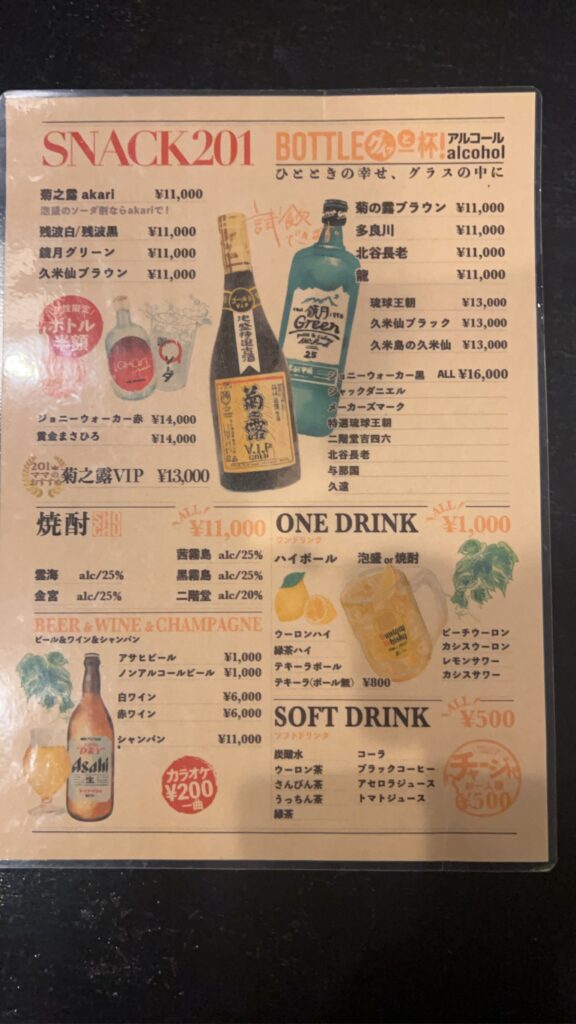 SNACK201
BOTTLE グイッと一杯! アルコール alcohol
ひとときの幸せ、グラスの中に
菊之露 akari ¥11,000
泡盛のソーダ割ならakariで!
残波白/残波黒 ¥11,000
鏡月グリーン ¥11,000
久米仙ブラウン ¥11,000
試飲できます
菊の露ブラウン ¥11,000
多良川 ¥11,000
北谷長老 ¥11,000
龍 ¥11,000
琉球王朝 ¥13,000
久米仙ブラック ¥13,000
久米島の久米仙 ¥13,000
女性限定!
ボトル
半額
ソーダ
ジョニーウォーカー赤 ¥14,000
黄金まさひろ ¥14,000
201
ママの
おすすめ
菊之露VIP ¥13,000
地盤特選古酒
菊之露
V.I.P
GOLD
鏡月
Green
25
ジョニーウォーカー黒 ALL ¥16,000
ジャックダニエル
メーカーズマーク
特選琉球王朝
二階堂吉四六
北谷長老
与那国
久遠
焼酎 SHOCHU ALL ¥11,000
茜霧島 alc/25%
雲海 alc/25% 黒霧島 alc/25%
金宮 alc/25% 二階堂 alc/20%
ONE DRINK ALL ¥1,000
ワンドリンク
ハイボール 泡盛or焼酎
ウーロンハイ
緑茶ハイ
テキーラボール
テキーラ(ボール無) ¥800
ピーチウーロン
カシスウーロン
レモンサワー
カシスサワー
BEER & WINE & CHAMPAGNE
ビール&ワイン&シャンパン
アサヒビール ¥1,000
ノンアルコールビール ¥1,000
白ワイン ¥6,000
赤ワイン ¥6,000
シャンパン ¥11,000
DRY
Asahi
生
カラオケ
¥200
一曲
SOFT DRINK ALL ¥500
ソフトドリンク
炭酸水 コーラ
ウーロン茶 ブラックコーヒー
さんぴん茶 アセロラジュース
うっちん茶 トマトジュース
緑茶
チャージ代
お一人様
¥500